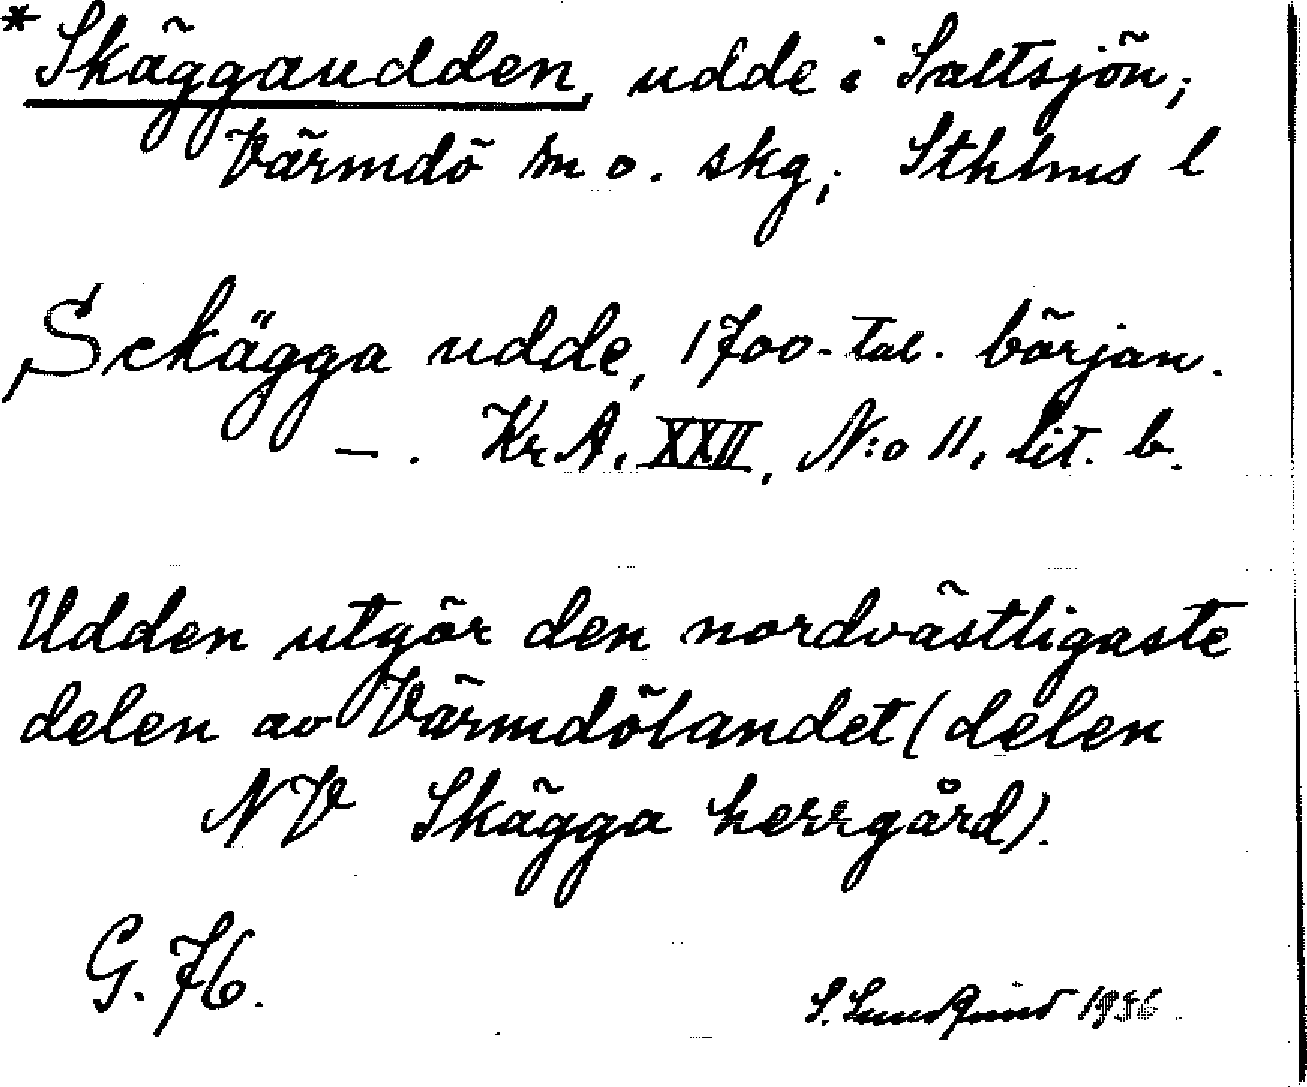 *Skäggaudden, udde i Saltsjön;
Värmdö m o. skg; Sthlms l
Sckägga udde, 1700-tal. början.
—. Kr A. XXII, N:o 11, lit. b.
Udden utgör den nordvästligaste
delen av Värmdölandet (delen
NV Skägga herrgård).
G. 76.
S. 1936